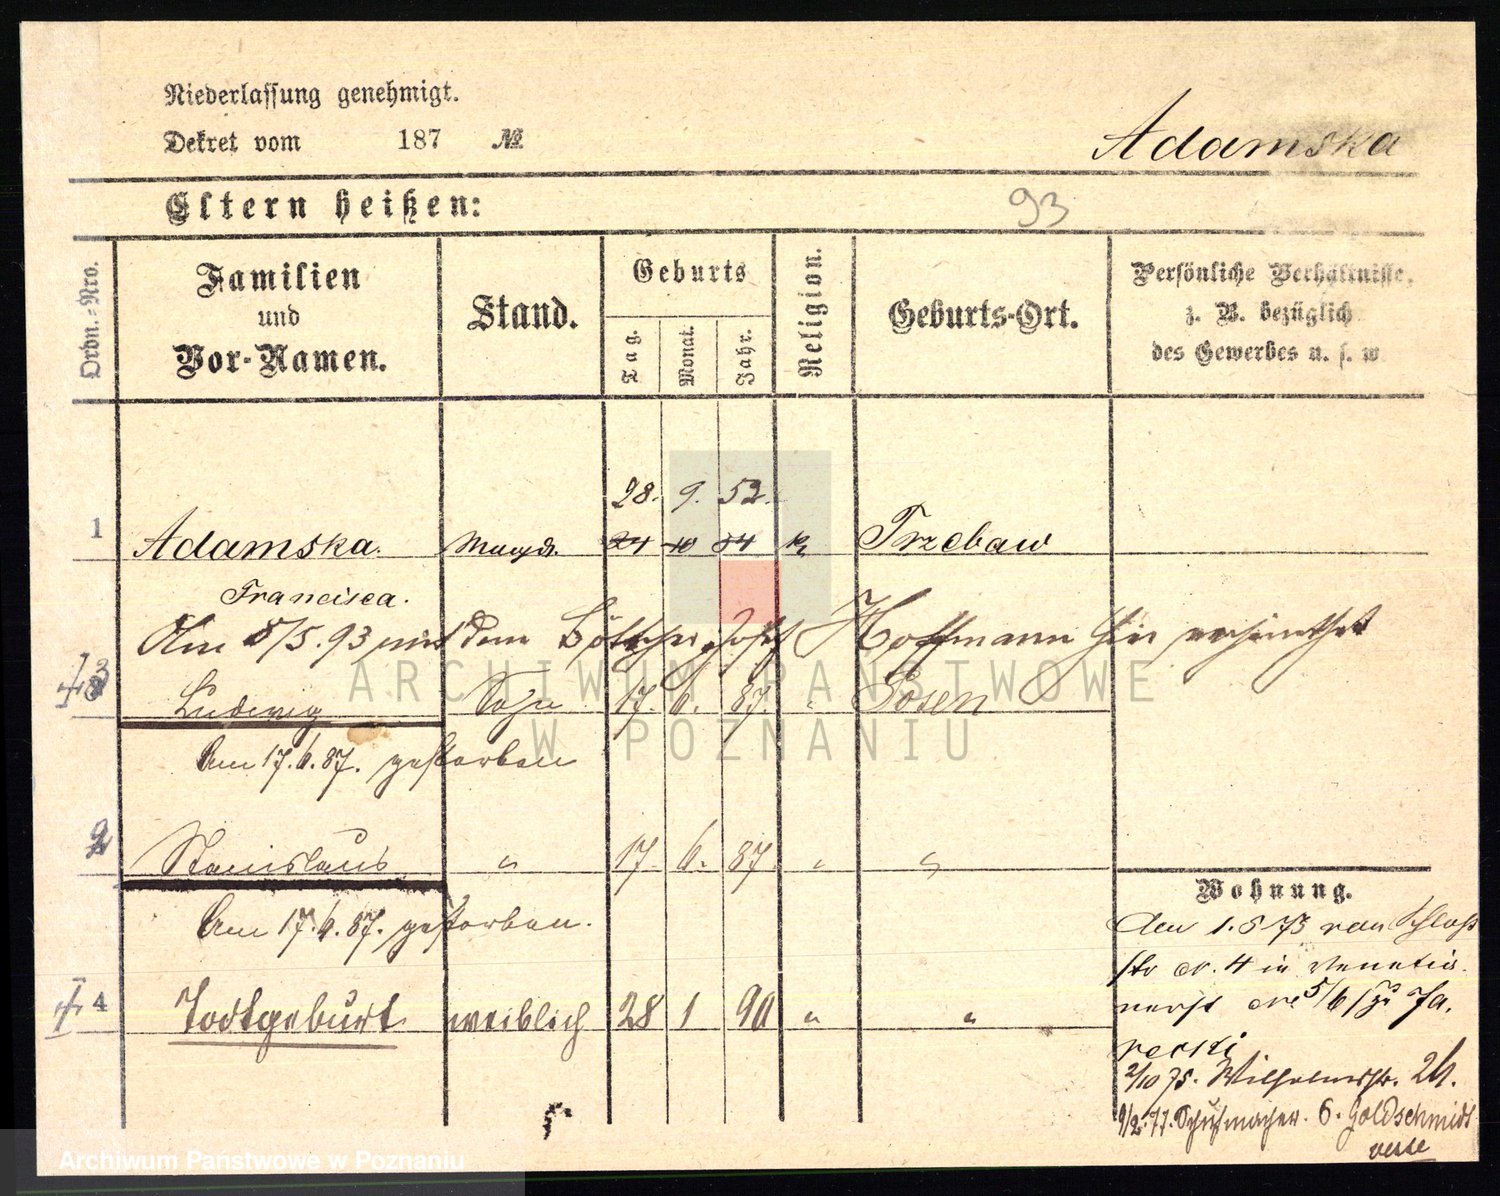 Niederlassung genehmigt.
Dekret vom 187 №
Adamska
Eltern heißen:
93
Ordn.-Nro.
Familien
und
Vor-Namen.
Stand.
Geburts
Tag.
Monat.
Jahr.
Religion.
Geburts-Ort.
Persönliche Verhältnisse,
z. B. bezüglich
des Gewerbes u. s. w.
28. 9. 52.
1 Adamska. Magd. 24 10 54 k. Trzebaw
Francisca.
Am 8/5. 93 mit dem Böttcher Josef Hoffmann hier verheirathet
3 Ludwig Sohn 17. 6. 87 " Posen
Am 17.6.87. gestorben
2 Stanislaus " 17. 6. 87 " "
Am 17.6.87. gestorben.
4 Todtgeburt weiblich 28 1 90 " "
Wohnung.
Den 1.5 73 von Schloß
str nr. 4 in
5/6
2/10 75. Wilhelmstr. 26.
9/2.77. Schuhmacher. 6. Goldschmidt
ARCHIWUM PAŃSTWOWE
W POZNANIU
Archiwum Państwowe w Poznaniu